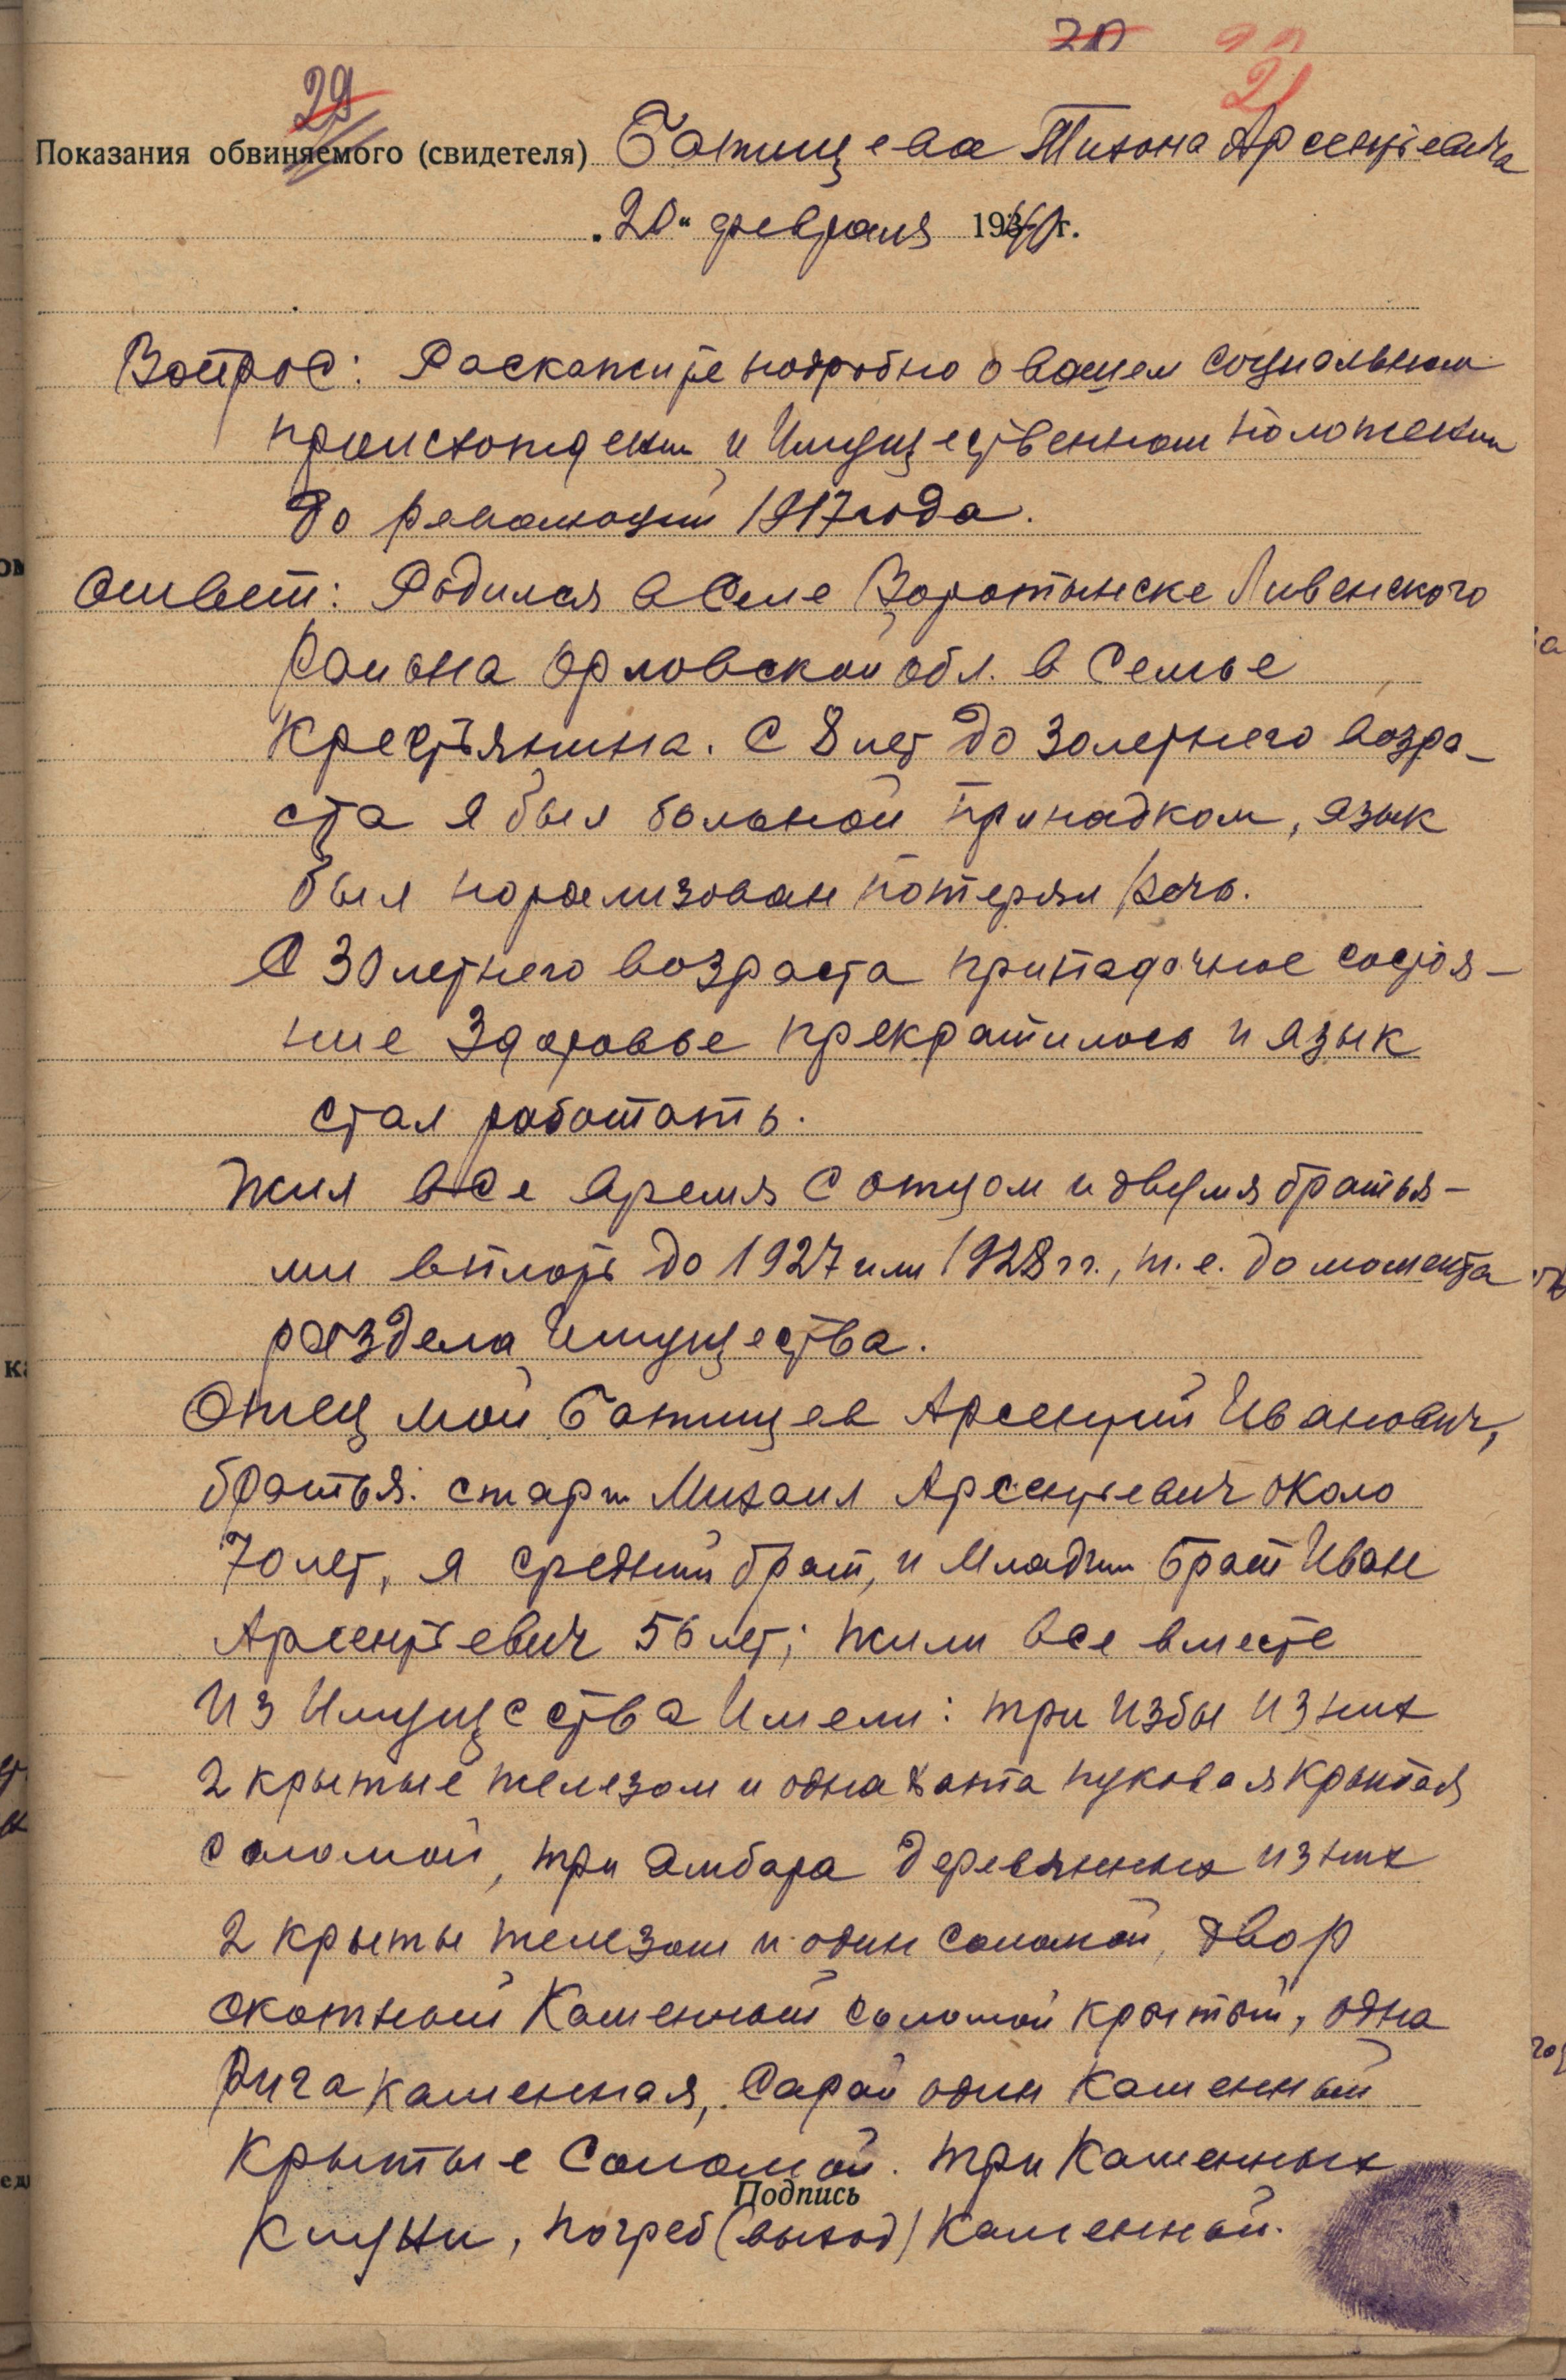 20 22
29 21
Показания обвиняемого (свидетеля) Батищева Тихона Арсентьевича
„20“ февраля 1940 г.
Вопрос: Раскажите подробно о вашем социальном
происхождении и Имущественном положении
до революции 1917 года.
Ответ: Родился в Селе Воротынске Ливенского
района Орловской обл. в Семье
Крестьянина. С 8 лет до 30летнего возра-
ста я был больной припадком, язык
был порализован потерял речь.
С 30летнего возраста припадочное состоя-
ние Здоровье прекратилось и язык
стал работать.
Жил все время С отцом и двумя братья-
ми вплоть до 1927 или 1928 гг., т.е. до момента
раздела Имущества.
Отец мой Батищев Арсентий Иванович,
братья: старш Михаил Арсентьевич около
70 лет, я средний брат, и Младши брат Иван
Арсентьевич 56 лет; жили все вместе
Из Имущества Имели: три избы из них
2 крытые железом и одна хата пуковая крытая
соломой, три амбара деревянных из них
2 крыты железом и один соломой, двор
скотный Каменный соломой крытый, одна
Рига каменная, Сарай один Каменный
Крытые Соломой. три Каменных
Подпись
клуни, погреб (выход) Каменный.